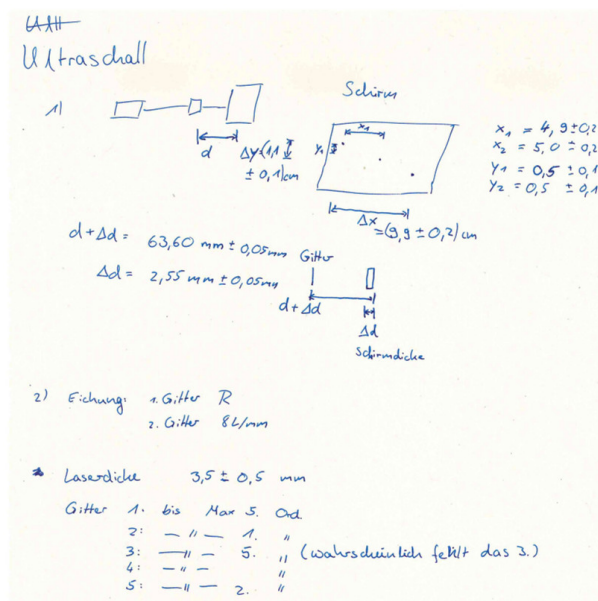 Ull
Ultraschall
1)
Schirm
d
Δy=(1,1
± 0,1)cm
x₁
y₁
Δx
=(9,9 ± 0,2)cm
x₁ = 4,9±0,2
x₂ = 5,0 ± 0,2
y₁ = 0,5 ± 0,1
y₂ = 0,5 ± 0,1
d+Δd = 63,60 mm ± 0,05mm
Δd = 2,55 mm ± 0,05mm
Gitter
d+Δd
Δd
Schirmdicke
2) Eichung: 1. Gitter R
2. Gitter 8L/mm
Laserdicke 3,5 ± 0,5 mm
Gitter 1. bis Max 5. Ord.
2: — " — 1. "
3: — " — 5. " (wahrscheinlich fehlt das 3.)
4: — " — "
5: — " — 2. "